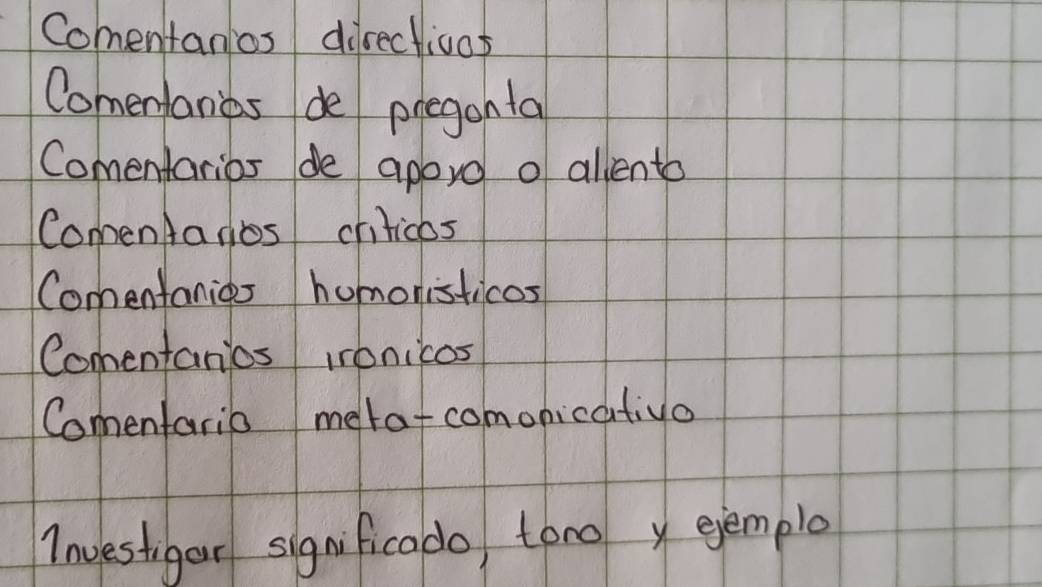 Comentarios directivos
Comentarios de pregonta
Comentarios de apoyo o aliento
Comentarios criticos
Comentarios homoristicos
Comentarios ironicos
Comentario meta-comonicativo
Investigar significado, tono y ejemplo